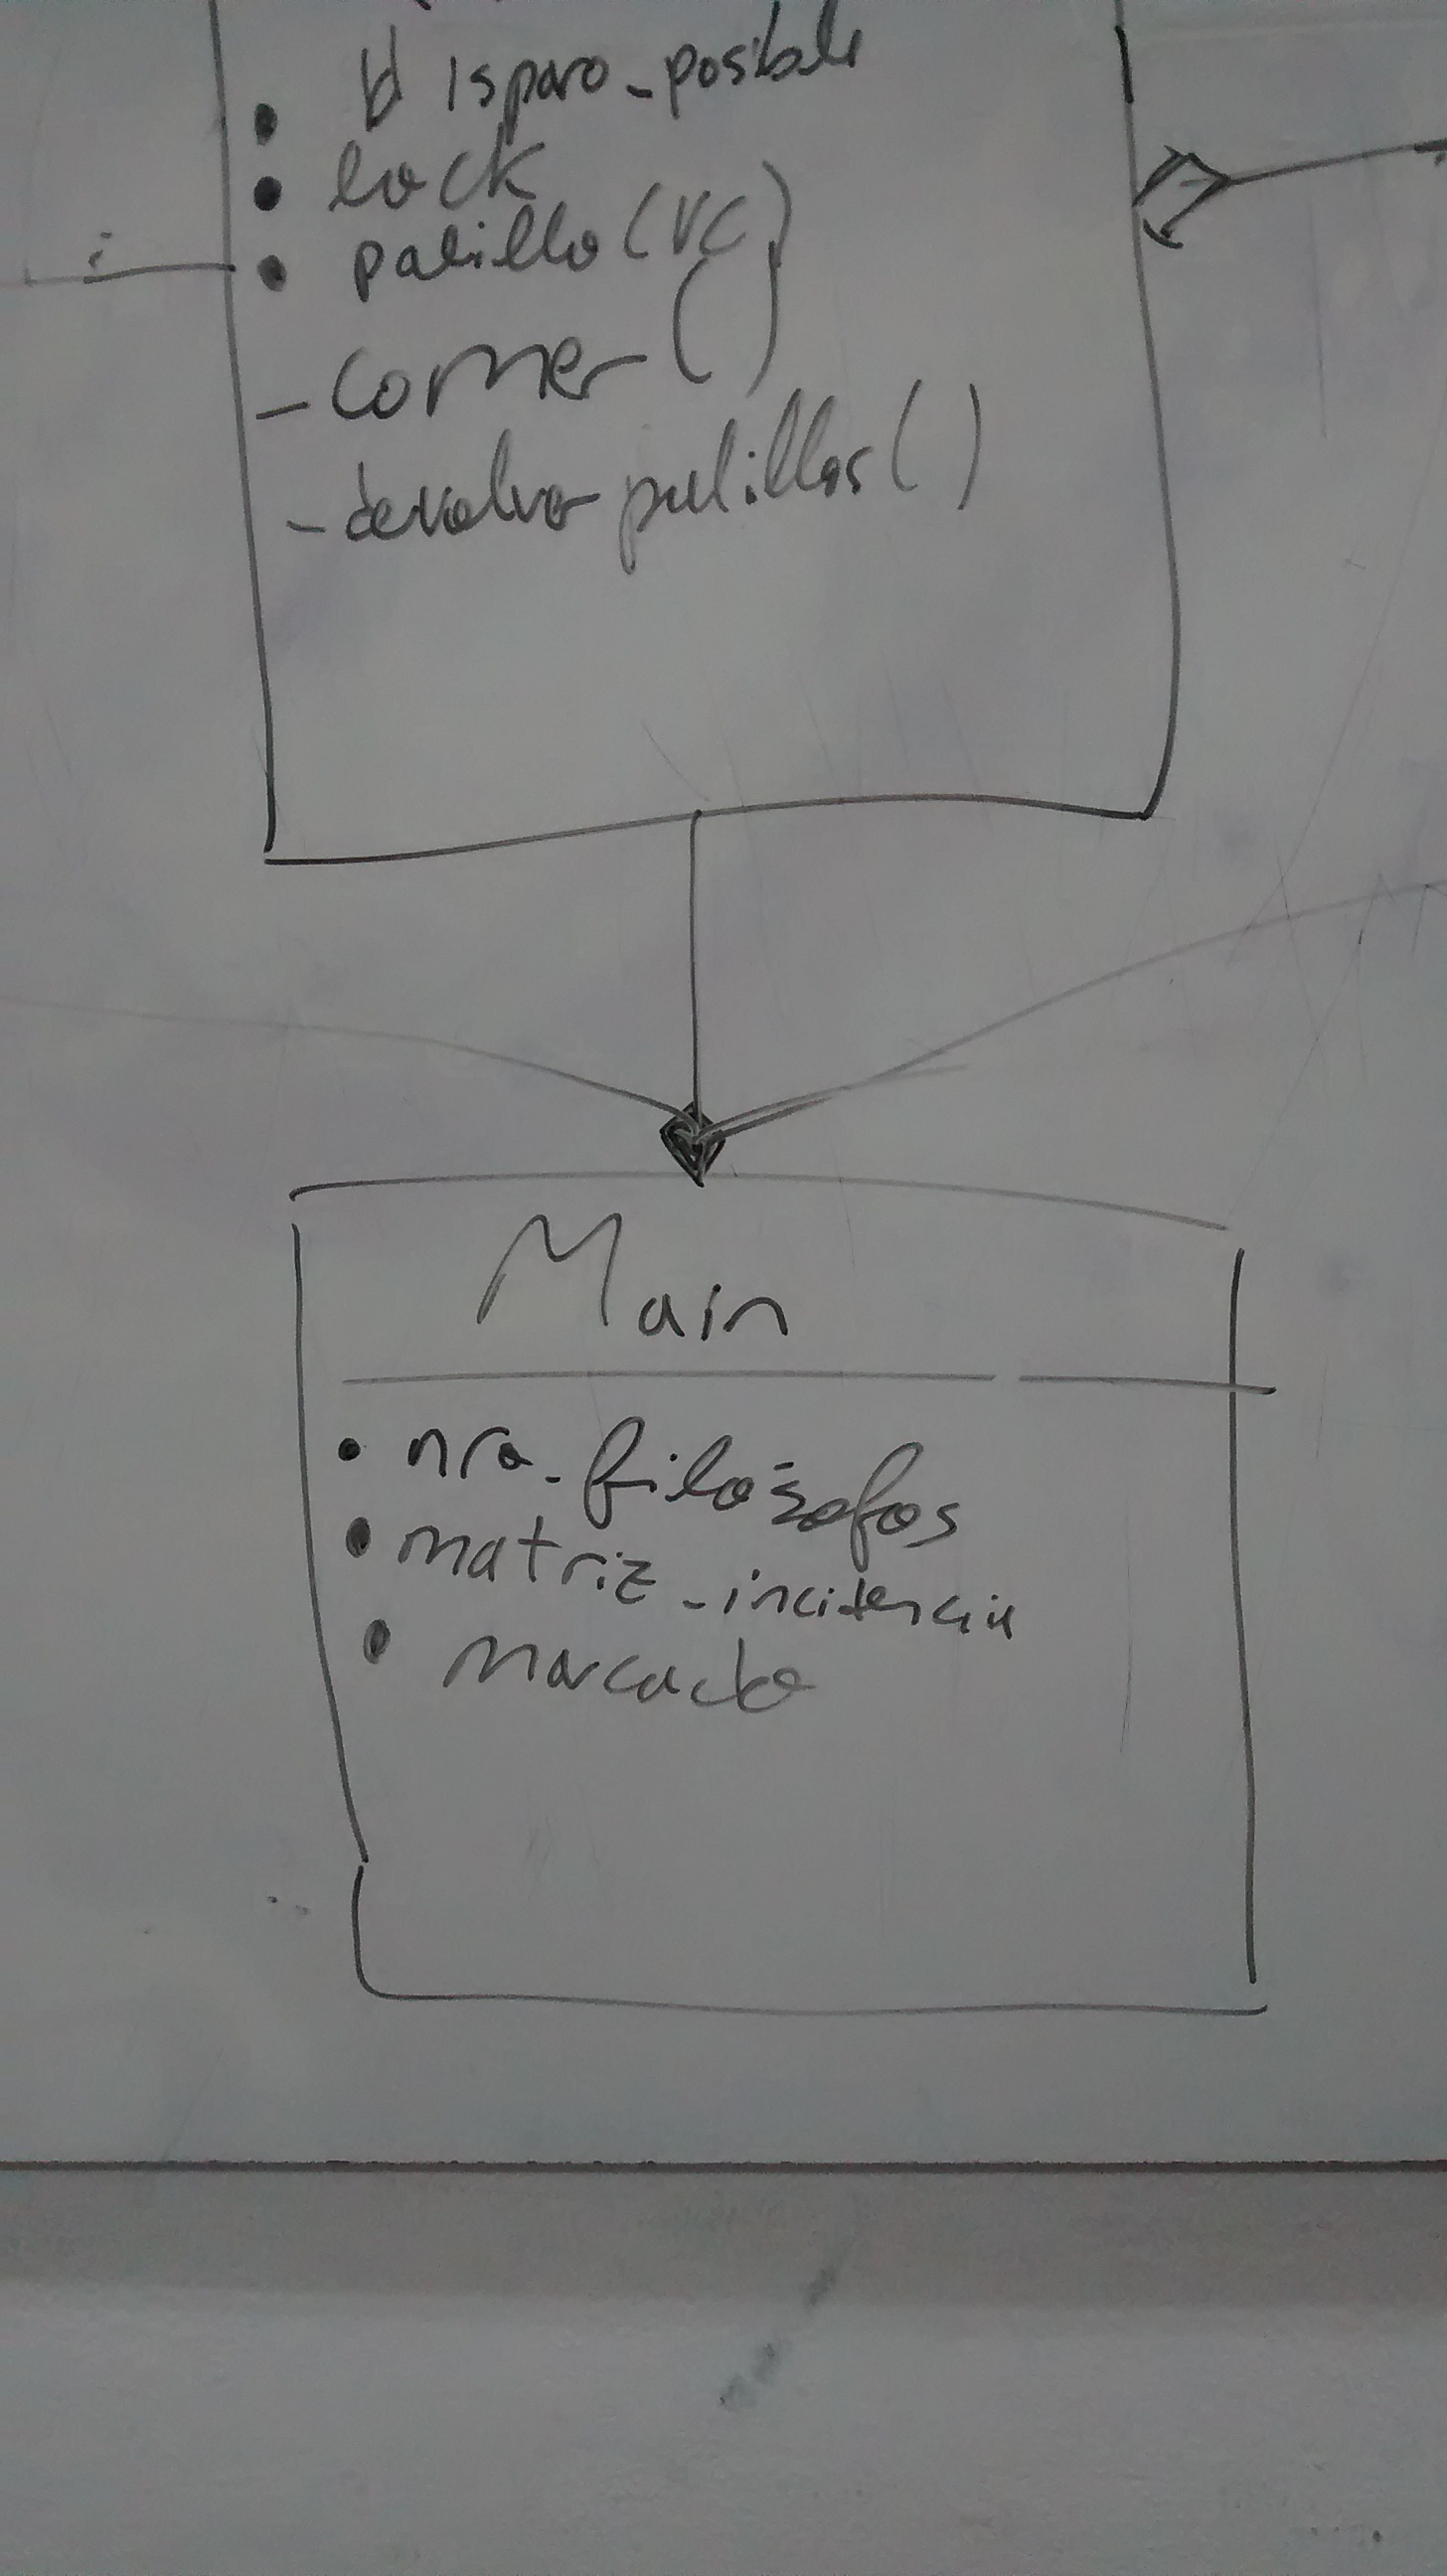 • disparo_posible
• lock
• palillo (VC)
- comer ()
- devolver palillos ()
Main
• nro_filósofos
• matriz_incidencia
• marcado